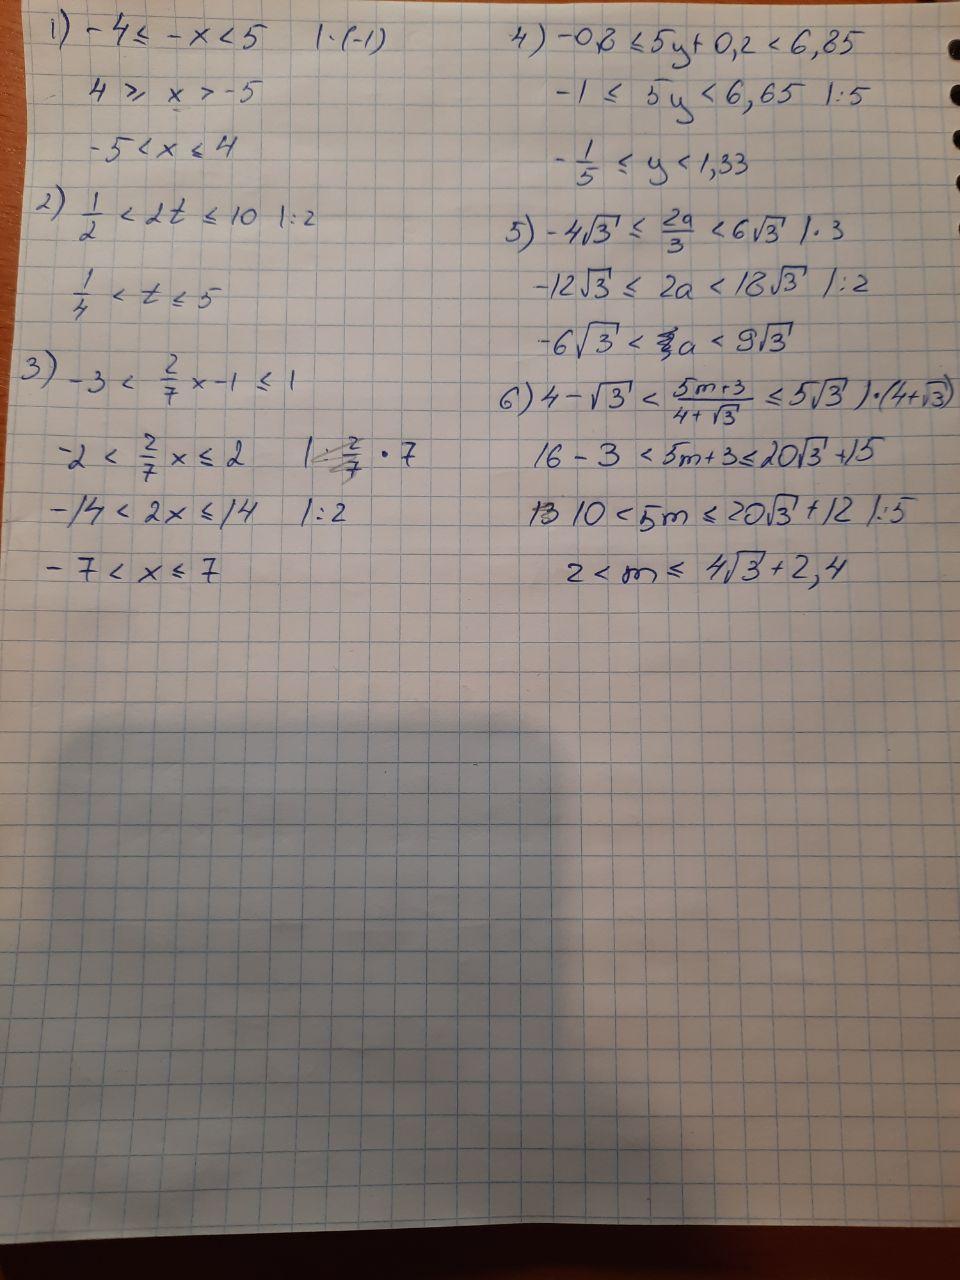 1) -4 ≤ -x < 5 |·(-1)
4 ≥ x > -5
-5 < x ≤ 4
2) 1/2 < 2t ≤ 10 |:2
1/4 < t ≤ 5
3) -3 < 2/7 x - 1 ≤ 1
-2 < 2/7 x ≤ 2 | · 7
-14 < 2x ≤ 14 |:2
-7 < x ≤ 7
4) -0,8 ≤ 5y + 0,2 < 6,85
-1 ≤ 5y < 6,65 |:5
-1/5 ≤ y < 1,33
5) -4√3 ≤ 2a/3 < 6√3 |·3
-12√3 ≤ 2a < 18√3 |:2
-6√3 < a < 9√3
6) 4 - √3 < (5m+3)/(4+√3) ≤ 5√3 |·(4+√3)
16 - 3 < 5m+3 ≤ 20√3 + 15
10 < 5m ≤ 20√3 + 12 |:5
2 < m ≤ 4√3 + 2,4